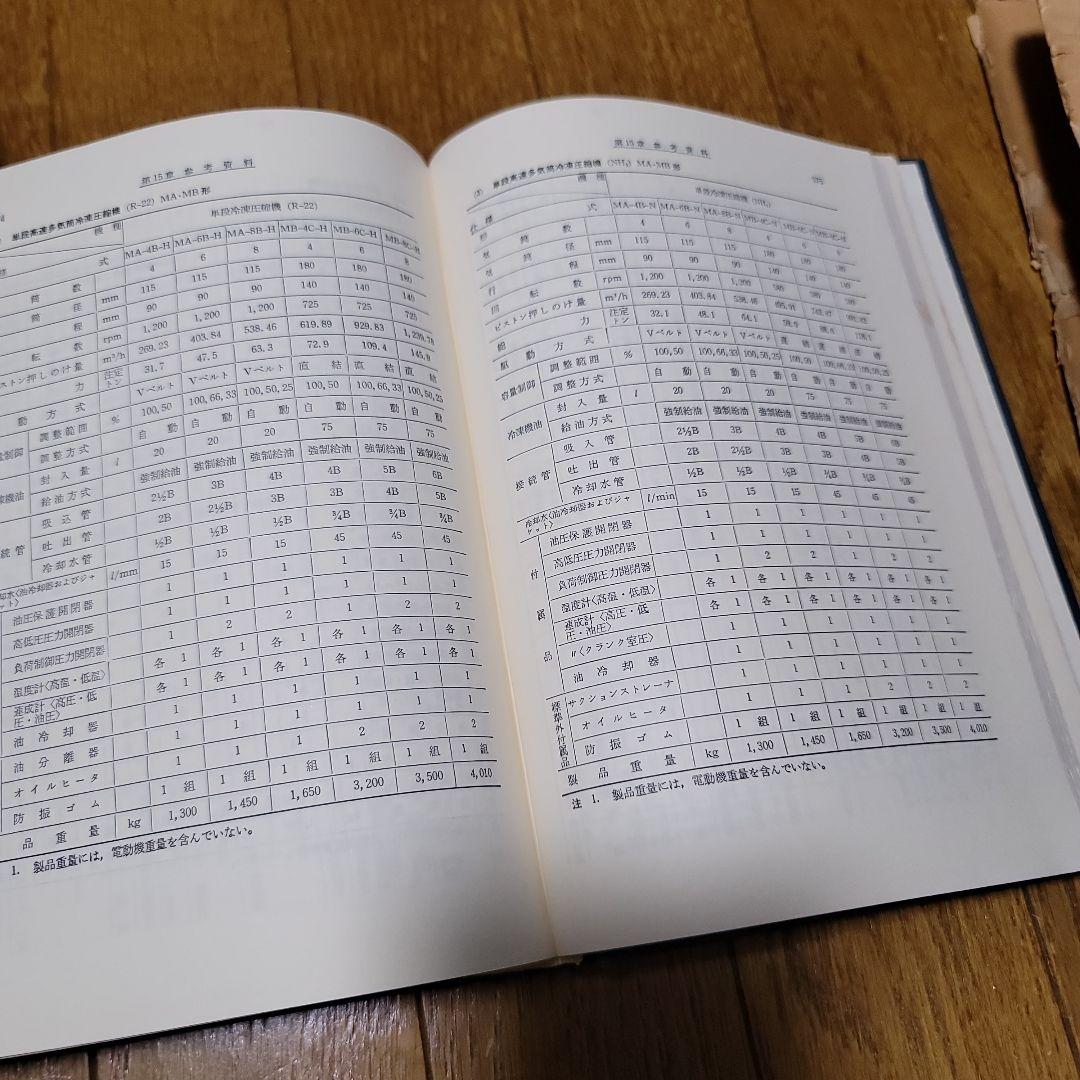 第15章 参考資料
単段高速多気筒冷凍圧縮機 (R-22) MA・MB形
機種 単段冷凍圧縮機 (R-22)
式 MA-4B-H MA-6B-H MA-8B-H MB-4C-H MB-6C-H MB-8C-H
筒数 4 6 8 4 6 8
筒径 mm 115 115 115 180 180 180
程 mm 90 90 90 140 140 140
転数 rpm 1,200 1,200 1,200 725 725 725
ストン押しのけ量 m³/h 269.23 403.84 538.46 619.89 929.83
力 法定トン 31.7 47.5 63.3 72.9 109.4 145.9
動方式 Vベルト Vベルト Vベルト 直結 直結 直結
調整範囲 % 100,50 100,66,33 100,50,25 100,50 100,66,33 100,50,25
調整方式 自動 自動 自動 自動 自動 自動
封入量 l 20 20 20 75 75 75
給油方式 強制給油 強制給油 強制給油 強制給油 強制給油 強制給油
吸込管 2½B 3B 4B 4B 5B 6B
吐出管 2B 2½B 3B 3B 4B 5B
冷却水管 ½B ½B ½B ¾B ¾B ¾B
却水〈油冷却器およびジャケット〉 l/mm 15 15 15 45 45 45
油圧保護開閉器 1 1 1 1 1 1
高低圧圧力開閉器 1 1 1 1 1 1
負荷制御圧力開閉器 1 2 2 1 2 2
温度計〈高温・低温〉 各1 各1 各1 各1 各1 各1
連成計〈高圧・低圧・油圧〉 各1 各1 各1 各1 各1 各1
油冷却器 1 1 1 1 1 1
油分離器 1 1 1 1 1 1
オイルヒータ 1 1 1 2 2 2
防振ゴム 1組 1組 1組 1組 1組 1組
品重量 kg 1,300 1,450 1,650 3,200 3,500 4,010
1. 製品重量には，電動機重量を含んでいない。
第15章 参考資料
単段高速多気筒冷凍圧縮機 (NH₃) MA・MB形
機種 単段冷凍圧縮機 (NH₃)
仕様
形式 MA-4B-N MA-6B-N MA-8B-N MB-4C-N MB-6C-N MB-8C-N
気筒数 4 6 8 4 6 8
気筒径 mm 115 115 115 180 180 180
行程 mm 90 90 90 140 140 140
回転数 rpm 1,200 1,200 1,200
ピストン押しのけ量 m³/h 269.23 403.84 538.46
能力 法定トン 32.1 48.1 64.1
駆動方式 Vベルト Vベルト Vベルト 直結 直結 直結
容量制御 調整範囲 % 100,50 100,66,33 100,50,25 100,50 100,66,33 100,50,25
調整方式 自動 自動 自動 自動 自動 自動
冷凍機油 封入量 l 20 20 20 75 75 75
給油方式 強制給油 強制給油 強制給油 強制給油 強制給油 強制給油
接続管 吸入管 2½B 3B 4B 4B 5B 6B
吐出管 2B 2½B 3B 3B 4B 5B
冷却水管 ½B ½B ½B ¾B ¾B ¾B
冷却水〈油冷却器およびジャケット〉 l/min 15 15 15 45 45 45
付属品 油圧保護開閉器 1 1 1 1 1 1
高低圧圧力開閉器 1 1 1 1 1 1
負荷制御圧力開閉器 1 2 2 1 2 2
温度計〈高温・低温〉 各1 各1 各1 各1 各1 各1
連成計〈高圧・低圧・油圧〉 各1 各1 各1 各1 各1 各1
〃〈クランク室圧〉 1 1 1 1 1 1
油冷却器 1 1 1 1 1 1
標準外付属品 サクションストレーナ 1 1 1 1 1
オイルヒータ 1 1 1 2 2 2
防振ゴム 1組 1組 1組 1組 1組 1組
製品重量 kg 1,300 1,450 1,650 3,200 3,500 4,010
注 1. 製品重量には，電動機重量を含んでいない。